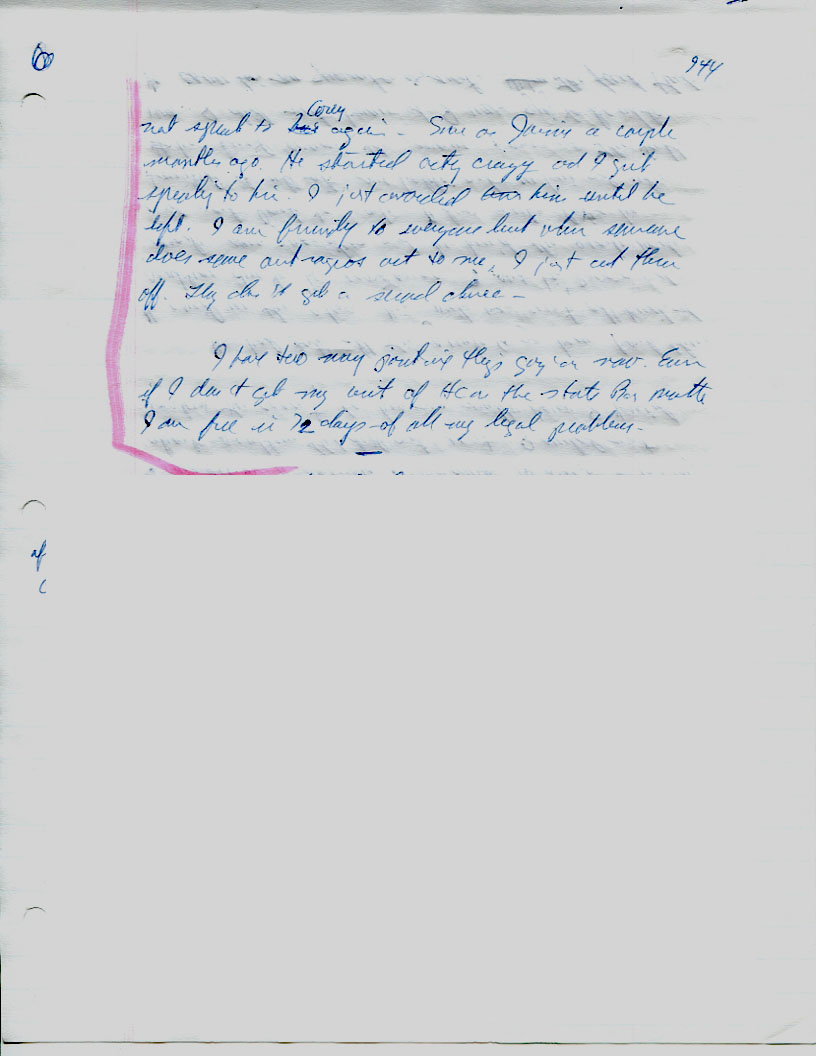 944
not speak to Corey again - Same as Junior a couple
months ago. He started acting crazy and I quit
speaking to him. I just avoided him until he
left. I am friendly to everyone but when someone
does some outrageous act to me, I just cut them
off. They don't get a second chance -
I have too many positive things going on now. Even
if I don't get my writ of HC on the State Bar matter
I am free in 72 days of all my legal problems.
of